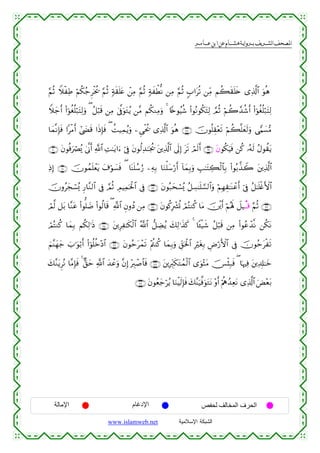 المصحف الشريف برواية هشام عن ابن عامر
هُوَ ٱلَّذِى خَلَقَكُم مِّن تُرَابٍ ثُمَّ مِن نُّطْفَةٍ ثُمَّ مِنْ عَلَقَةٍ ثُمَّ يُخْرِجُكُمْ طِفْلًا ثُمَّ
لِتَبْلُغُوٓا۟ أَشُدَّكُمْ ثُمَّ لِتَكُونُوا۟ شِيُوخًا ۚ وَمِنكُم مَّن يُتَوَفَّىٰ مِن قَبْلُ ۖ وَلِتَبْلُغُوٓا۟ أَجَلًا
مُّسَمًّى وَلَعَلَّكُمْ تَعْقِلُونَ هُوَ ٱلَّذِى يُحْىِۦ وَيُمِيتُ ۖ فَإِذَا قَضَىٰٓ أَمْرًا فَإِنَّمَا
يَقُولُ لَهُۥ كُن فَيَكُونَ أَلَمْ تَرَ إِلَى ٱلَّذِينَ يُجَٰدِلُونَ فِىٓ ءَايَٰتِ ٱللَّهِ أَنَّىٰ يُصْرَفُونَ
ٱلَّذِينَ كَذَّبُوا۟ بِٱلْكِتَٰبِ وَبِمَآ أَرْسَلْنَا بِهِۦ رُسُلَنَا ۖ فَسَوْفَ يَعْلَمُونَ إِذِ
ٱلْأَغْلَٰلُ فِىٓ أَعْنَٰقِهِمْ وَٱلسَّلَٰسِلُ يُسْحَبُونَ فِى ٱلْحَمِيمِ ثُمَّ فِى ٱلنَّارِ يُسْجَرُونَ
ثُمَّ قِيلَ لَهُمْ أَيْنَ مَا كُنتُمْ تُشْرِكُونَ مِن دُونِ ٱللَّهِ ۖ قَالُوا۟ ضَلُّوا۟ عَنَّا بَل لَّمْ
نَكُن نَّدْعُوا۟ مِن قَبْلُ شَيْـًٔا ۚ كَذَٰلِكَ يُضِلُّ ٱللَّهُ ٱلْكَٰفِرِينَ ذَٰلِكُم بِمَا كُنتُمْ
تَفْرَحُونَ فِى ٱلْأَرْضِ بِغَيْرِ ٱلْحَقِّ وَبِمَا كُنتُمْ تَمْرَحُونَ ٱدْخُلُوٓا۟ أَبْوَٰبَ جَهَنَّمَ
خَٰلِدِينَ فِيهَا ۖ فَبِئْسَ مَثْوَى ٱلْمُتَكَبِّرِينَ فَٱصْبِرْ إِنَّ وَعْدَ ٱللَّهِ حَقٌّ ۚ فَإِمَّا نُرِيَنَّكَ
بَعْضَ ٱلَّذِى نَعِدُهُمْ أَوْ نَتَوَفَّيَنَّكَ فَإِلَيْنَا يُرْجَعُونَ
الحرف المخالف لحفص الإدغام الإمالة
الشبكة الإسلامية www.islamweb.net